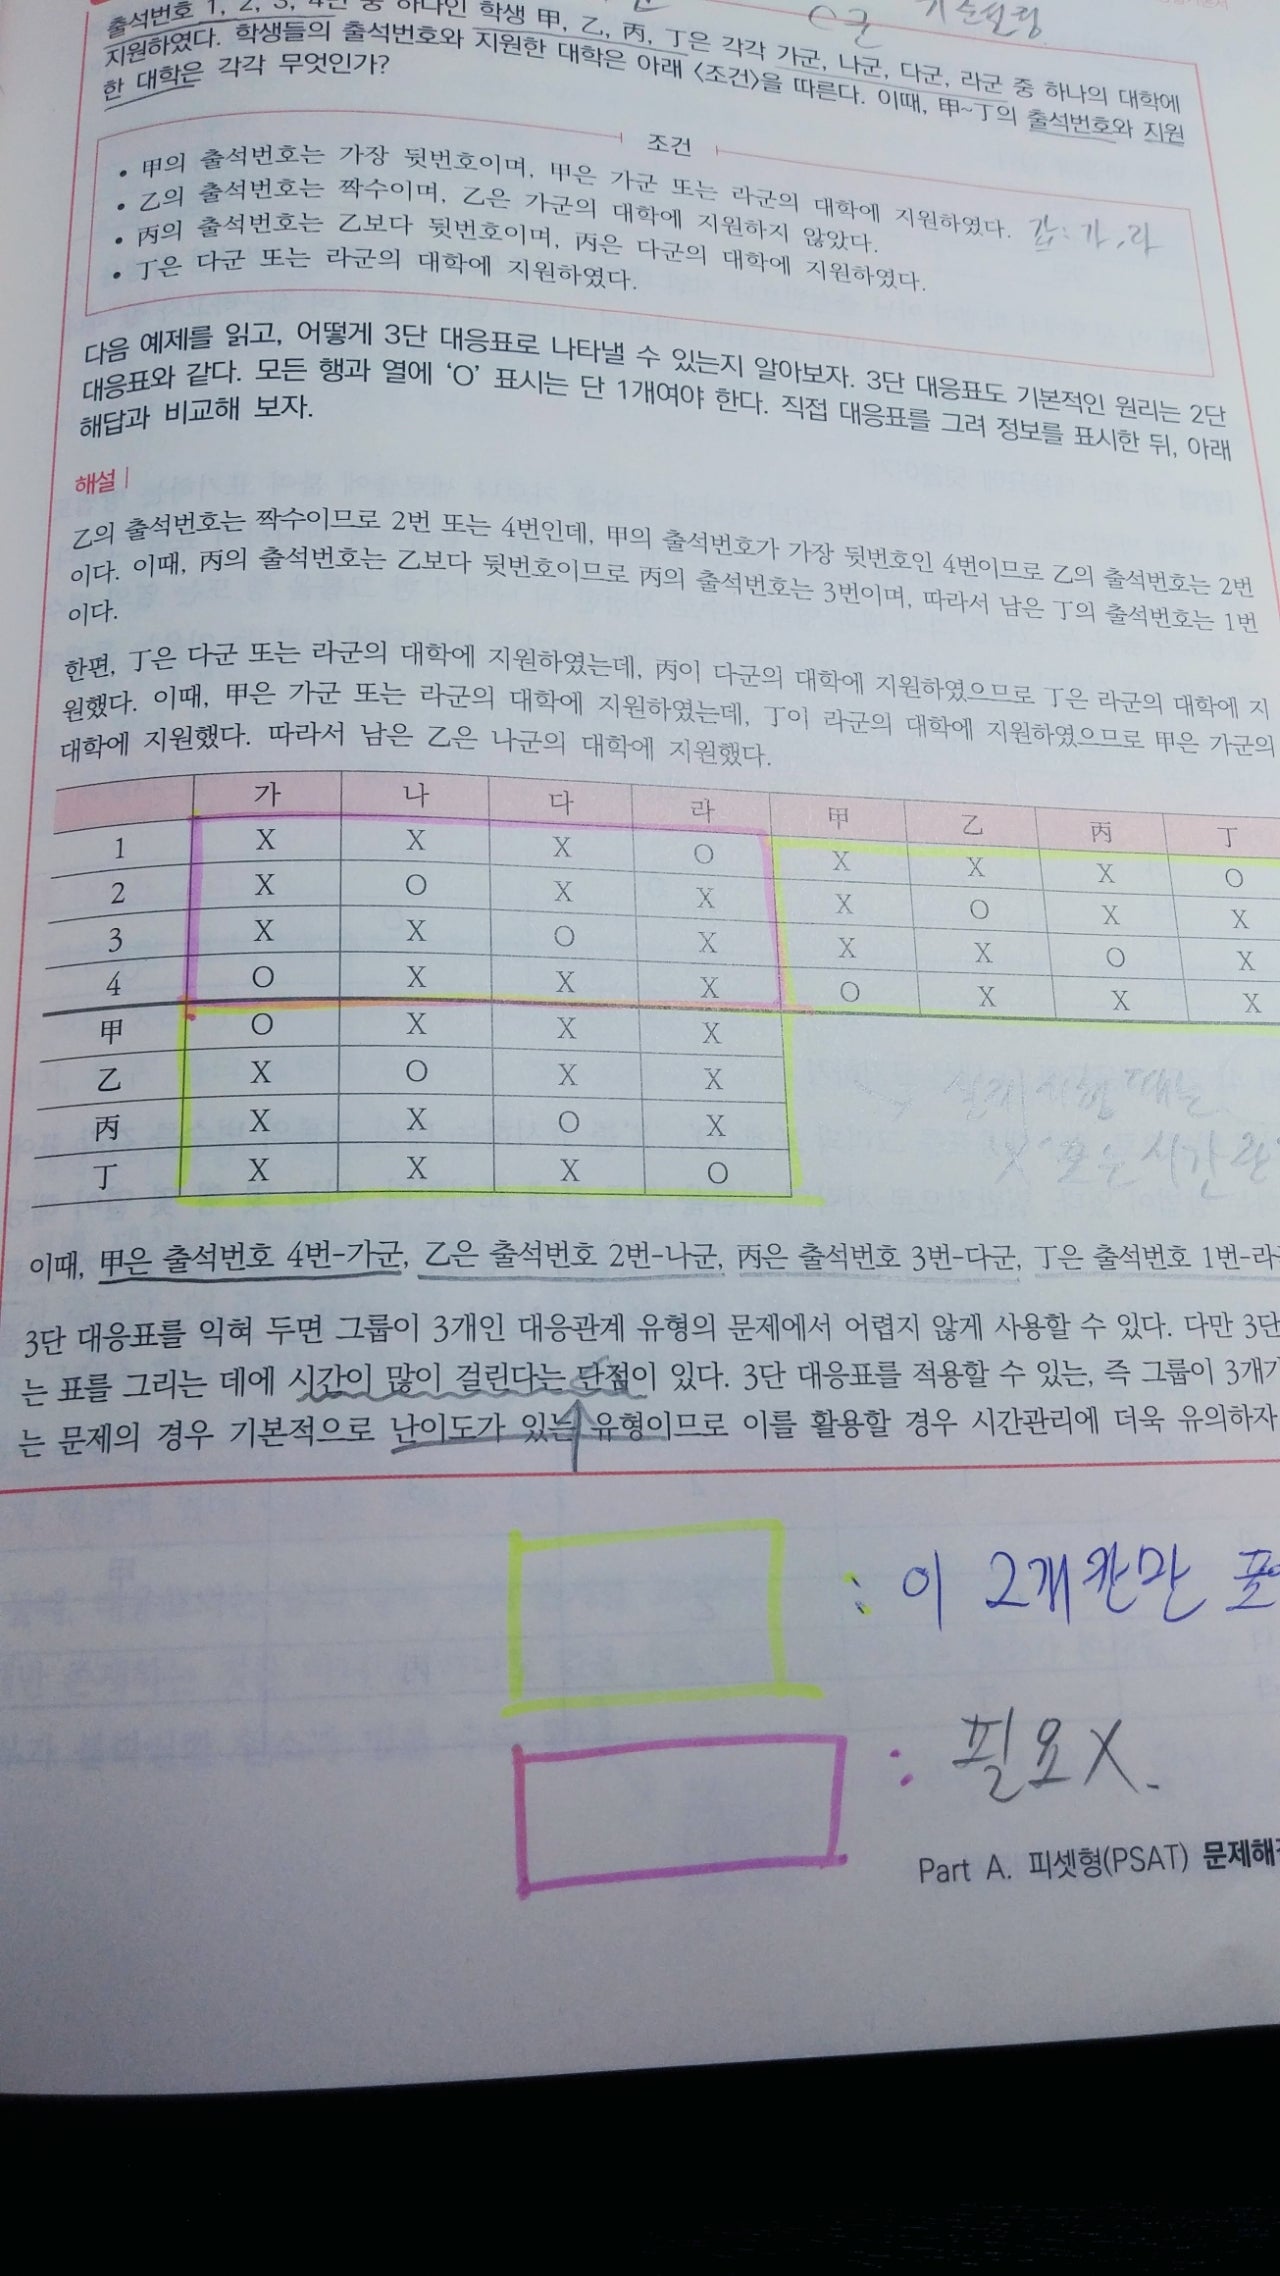 출석번호 1, 2, 3, 4번 중 하나인 학생 甲, 乙, 丙, 丁은 각각 가군, 나군, 다군, 라군 중 하나의 대학에
지원하였다. 학생들의 출석번호와 지원한 대학은 아래 〈조건〉을 따른다. 이때, 甲~丁의 출석번호와 지원
한 대학은 각각 무엇인가?
조건
• 甲의 출석번호는 가장 뒷번호이며, 甲은 가군 또는 라군의 대학에 지원하였다. 갑: 가, 라
• 乙의 출석번호는 짝수이며, 乙은 가군의 대학에 지원하지 않았다.
• 丙의 출석번호는 乙보다 뒷번호이며, 丙은 다군의 대학에 지원하였다.
• 丁은 다군 또는 라군의 대학에 지원하였다.
다음 예제를 읽고, 어떻게 3단 대응표로 나타낼 수 있는지 알아보자. 3단 대응표도 기본적인 원리는 2단
대응표와 같다. 모든 행과 열에 ‘O’ 표시는 단 1개여야 한다. 직접 대응표를 그려 정보를 표시한 뒤, 아래
해답과 비교해 보자.
해설 |
乙의 출석번호는 짝수이므로 2번 또는 4번인데, 甲의 출석번호가 가장 뒷번호인 4번이므로 乙의 출석번호는 2번
이다. 이때, 丙의 출석번호는 乙보다 뒷번호이므로 丙의 출석번호는 3번이며, 따라서 남은 丁의 출석번호는 1번
이다.
한편, 丁은 다군 또는 라군의 대학에 지원하였는데, 丙이 다군의 대학에 지원하였으므로 丁은 라군의 대학에 지
원했다. 이때, 甲은 가군 또는 라군의 대학에 지원하였는데, 丁이 라군의 대학에 지원하였으므로 甲은 가군의
대학에 지원했다. 따라서 남은 乙은 나군의 대학에 지원했다.
가 나 다 라 甲 乙 丙 丁
1 X X X O X X X O
2 X O X X X O X X
3 X X O X X X O X
4 O X X X O X X X
甲 O X X X
乙 X O X X
丙 X X O X
丁 X X X O
실제 시험 때는
X 표는 시간 관
이때, 甲은 출석번호 4번-가군, 乙은 출석번호 2번-나군, 丙은 출석번호 3번-다군, 丁은 출석번호 1번-라
3단 대응표를 익혀 두면 그룹이 3개인 대응관계 유형의 문제에서 어렵지 않게 사용할 수 있다. 다만 3단
는 표를 그리는 데에 시간이 많이 걸린다는 단점이 있다. 3단 대응표를 적용할 수 있는, 즉 그룹이 3개가
는 문제의 경우 기본적으로 난이도가 있는 유형이므로 이를 활용할 경우 시간관리에 더욱 유의하자
: 이 2개칸만
: 필요X.
Part A. 피셋형(PSAT) 문제해